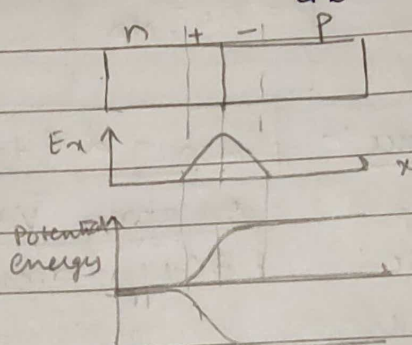 n + - P
Ex
x
Potential
energy